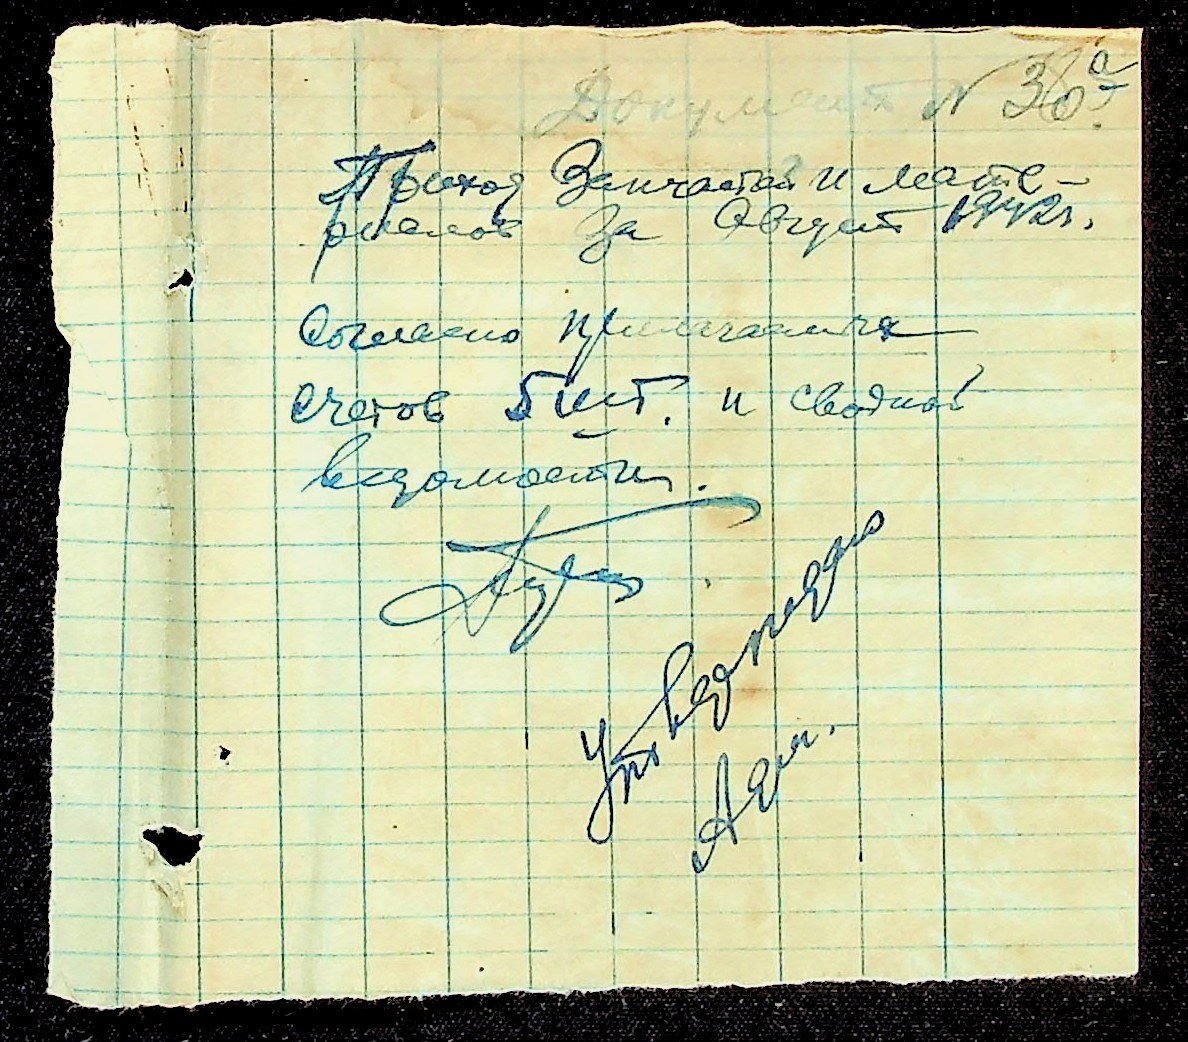 Документ N 36а
Приход Запчастей и мате-
риалов за Август 1942г.
Согласно прилагаемых
счетов 5 шт. и сводной
ведомости.
Утверждаю